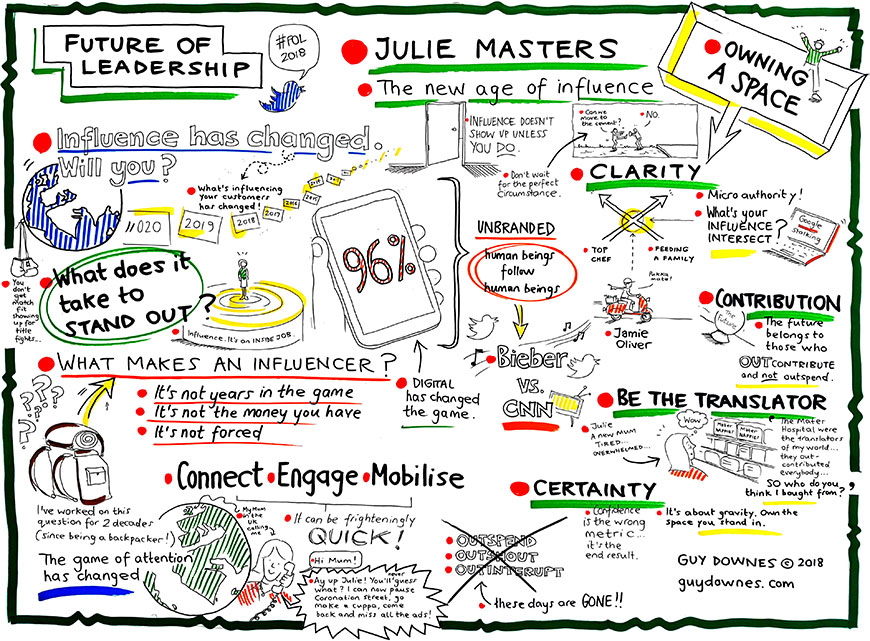 FUTURE OF
LEADERSHIP
#FOL
2018
JULIE MASTERS
The new age of influence
OWNING
A SPACE
Influence has changed.
Will you?
What's influencing
your customers
has changed!
2020
2019
2018
2017
2016
2015
2014
INFLUENCE DOESN'T
SHOW UP UNLESS
YOU DO.
Can we
move to
the cement?
NO.
Don't wait
for the perfect
circumstance.
CLARITY
Micro authority!
What's your
INFLUENCE
INTERSECT?
Google
stalking
TOP
CHEF
FEEDING
A FAMILY
Pukka
mate!
Jamie
Oliver
96%
UNBRANDED
human beings
follow
human beings
Bieber
VS.
CNN
You
don't
get
match
fit
showing
up for
title
fights...
What does it
take to
STAND OUT?
Influence. It's an INSIDE JOB
DIGITAL
has changed
the game.
CONTRIBUTION
The Future
The future
belongs to
those who
OUTCONTRIBUTE
and not outspend.
WHAT MAKES AN INFLUENCER?
It's not years in the game
It's not the money you have
It's not forced
???
?
BE THE TRANSLATOR
Julie
A NEW MUM
TIRED...
OVERWHELMED...
Wow
MATER
NAPPIES
MATER
NAPPIES
The Mater
Hospital were
the translators
of my world...
they out-
contributed
everybody...
SO who do you
think I bought from?
Connect Engage Mobilise
I've worked on this
question for 2 decades
(since being a backpacker!)
The game of attention
has changed
My Mum
in the
UK
calling
me
It can be frighteningly
QUICK!
Hi Mum!
Ay up Julie! You'll never guess
what? I can now pause
Coronation street, go
make a cuppa, come
back and miss all the ads!
CERTAINTY
Confidence
is the wrong
metric...
it's the
end result.
It's about gravity. Own the
space you stand in.
OUTSPEND
OUTSHOUT
OUTINTERUPT
these days are GONE!!
GUY DOWNES © 2018
guydownes.com